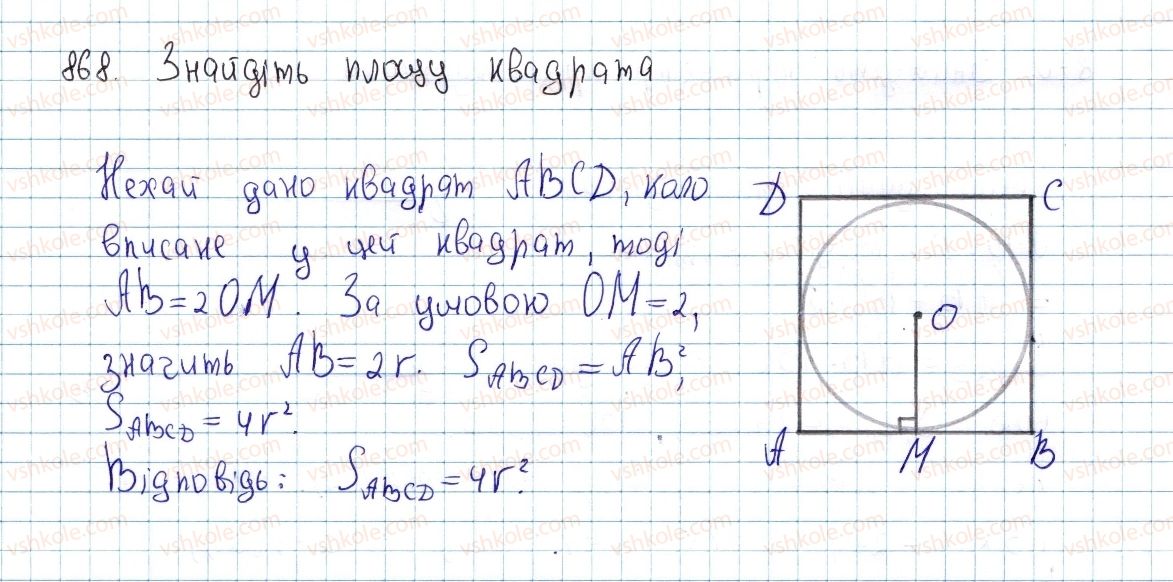 868. Знайдіть площу квадрата
Нехай дано квадрат ABCD, коло
вписане у цей квадрат, тоді
AB = 2OM. За умовою OM = 2,
значить AB = 2r. S_ABCD = AB²,
S_ABCD = 4r².
Відповідь: S_ABCD = 4r².
D C
O
A M B